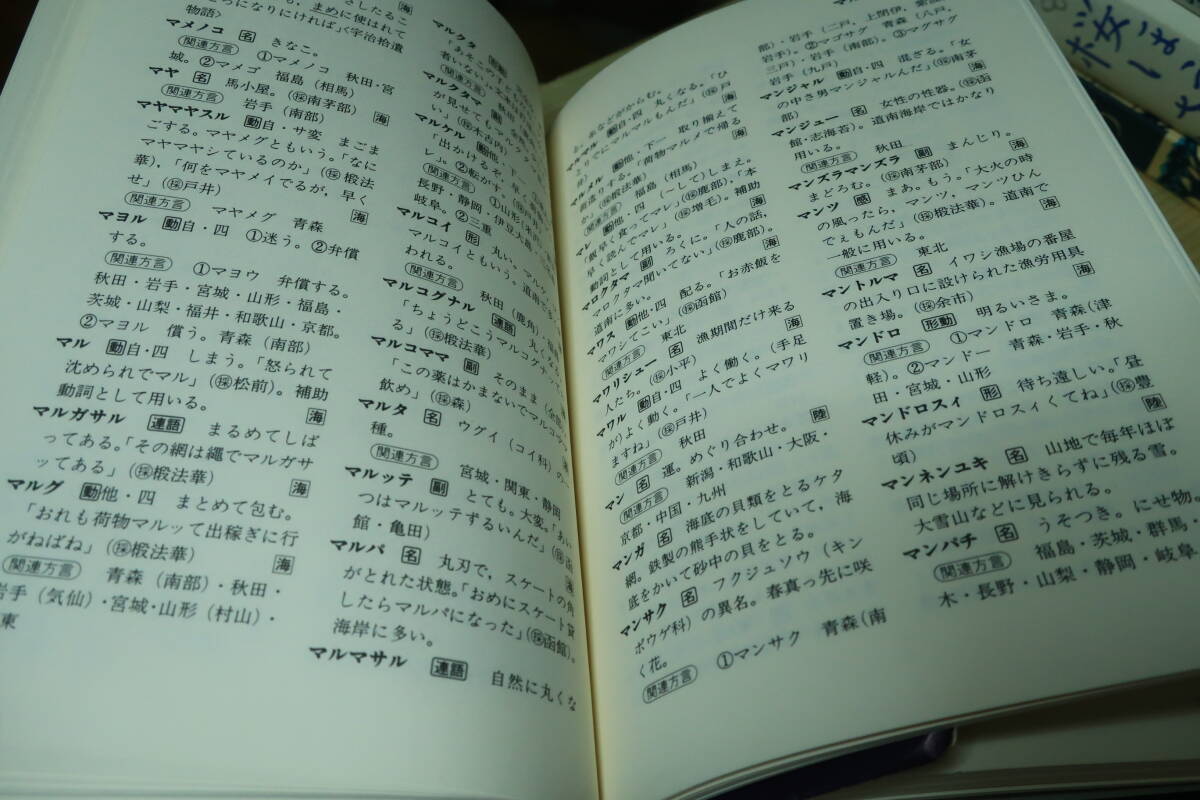 物語〉
マメノコ 名 きなこ。
関連方言 ①マメノコ 秋田・宮
城。②マメゴ 福島（相馬）
マヤ 名 馬小屋。（採南茅部）
関連方言 岩手（南部） 海
マヤマヤスル 動自・サ変 まごま
ごする。マヤメグともいう。「なに
マヤマヤシているのか」（採椴法
華），「何をマヤメイでるが，早く
せ」（採戸井）
関連方言 マヤメグ 青森 海
マヨル 動自・四 ①迷う。②弁償
する。
関連方言 ①マヨウ 弁償する。
秋田・岩手・宮城・山形・福島・
茨城・山梨・福井・和歌山・京都。
②マヨル 償う。青森（南部）
マル 動自・四 しまう。「怒られて
沈められでマル」（採松前）。補助
動詞として用いる。 海
マルガサル 連語 まるめてしば
ってある。「その網は縄でマルガサ
ッてある」（採椴法華） 海
マルグ 動他・四 まとめて包む。
「おれも荷物マルッて出稼ぎに行
がねばね」（採椴法華） 海
関連方言 青森（南部）・秋田・
岩手（気仙）・宮城・山形（村山）・
東
マルクタ
マルクタマ
マルケル 動他
「出かけるぞ，早
レ」。②転がす。
関連方言 ①山形
長野・静岡・伊豆大島
岐阜。②三重
マルコイ 形 丸い。マルケ
マルコイともいう。道南で多
われる。
関連方言 秋田（鹿角）
マルコグナル 連語 丸くなる
「ちょうどこうマルコグナッて
る」（採椴法華）
マルコママ 副 そのまま
「この薬はかまないでマルコママ
飲め」（採森）
マルタ 名 ウグイ（コイ科）の一
種。
関連方言 宮城・関東・静岡
マルッテ 副 とても。大変。「あい
つはマルッテずるいんだ」（採函
館・亀田） 海
マルバ 名 丸刃で，スケートの角
がとれた状態。「おめにスケート貸
したらマルバになった」（採函館）。
海岸に多い。
マルマサル 連語 自然に丸くな
あなどがからむ。
動自・四 丸くなる。「ひ
とりでにマルマルもんだ」（採戸
動他・下一 取り揃えて
「荷物マルメで帰る
（採椴法華） 海
関連方言 福島（相馬）
マレ 動他・四（～して）しまえ。
「飯早く食ってマレ」（採鹿部），「本
早く読んでマレ」（採増毛）。補助
動詞として用いる。
マロクタマ 副 ろくに。「人の話，
マロクタマ聞いてない」（採鹿部）。
道南に多い。 海
マワス 動他・四 配る。「お赤飯を
マワシてこい」（採函館）
関連方言 東北
マワリシュー 名 漁期間だけ来る
人たち。（採小平） 海
マワル 動自・四 よく働く。（手足
がよく動く。「一人でよくマワリ
ますね」（採戸井）
関連方言 秋田 陸
マン 名 運。めぐり合わせ。
関連方言 新潟・和歌山・大阪・
京都・中国・九州
マンガ 名 海底の貝類をとるケタ
網。鉄製の熊手状をしていて，海
底をかいて砂中の貝をとる。
マンサク 名 フクジュソウ（キン
ポウゲ科）の異名。春真っ先に咲
く花。
関連方言 ①マンサク 青森（南
部）・岩手（二戸，上閉伊，
②マゴサグ 青森（八戸，
三戸）・岩手（南部）。③マグサグ
岩手（九戸）
マンジャル 動自・四 混ざる。「女
の中さ男マンジャルんだ」（採南茅
部） 海
マンジュー 名 女性の性器。（採函
館・志海苔）。道南海岸ではかなり
用いる。
関連方言 秋田
マンズラマンズラ 副 まんじり。
まどろむ。（採南茅部） 海
マンツ 感 まあ。もう。「大火の時
の風ったら，マンツ，マンツひん
でぇもんだ」（採椴法華）。道南で
一般に用いる。 海
関連方言 東北
マントルマ 名 イワシ漁場の番屋
の出入り口に設けられた漁労用具
置き場。（採余市） 海
マンドロ 形動 明るいさま。
関連方言 ①マンドロ 青森（津
軽）。②マンドー 青森・岩手・秋
田・宮城・山形
マンドロスィ 形 待ち遠しい。「昼
休みがマンドロスィくてね」（採豊
頃） 陸
マンネンユキ 名 山地で毎年ほぼ
同じ場所に解けきらずに残る雪。
大雪山などに見られる。
マンパチ 名 うそつき。にせ物。
関連方言 福島・茨城・群馬・
木・長野・山梨・静岡・岐阜